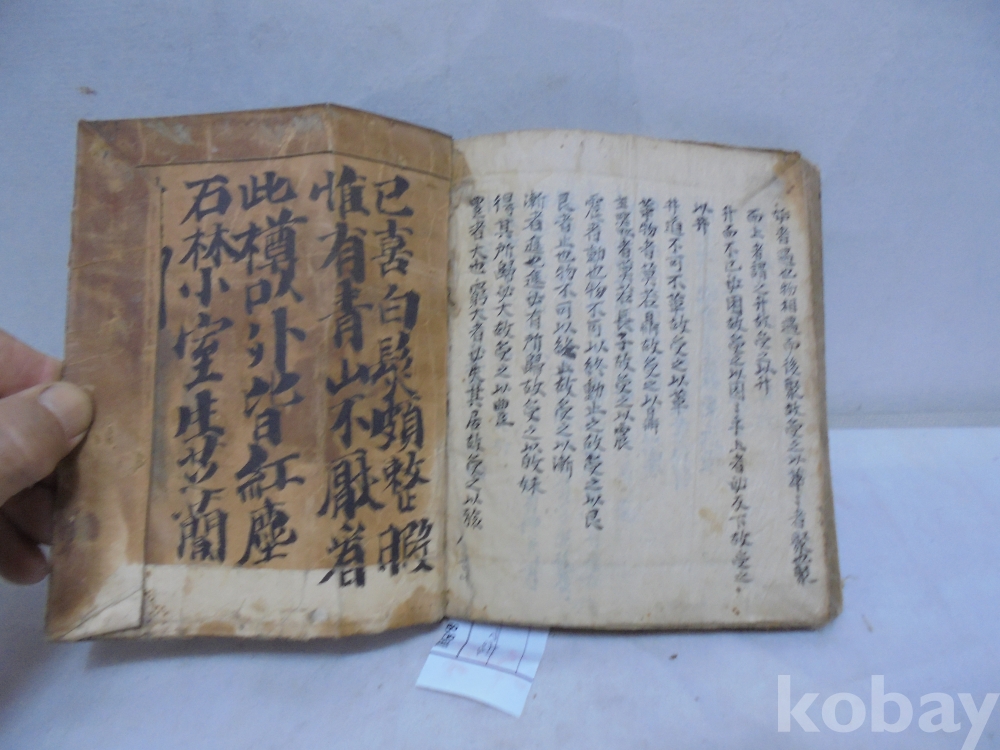 姤者遇也物相遇而後聚故受之以萃〻者聚也聚
而上者謂之升故受之以升
升而不已必困故受之以困〻乎上者必反下故受之
以井
井道不可不革故受之以革
革物者莫若鼎故受之以鼎
主器者莫若長子故受之以震
震者動也物不可以終動止之故受之以艮
艮者止也物不可以終止故受之以漸
漸者進也進必有所歸故受之以妹
得其所歸必大故受之以豊
豊者大也窮大者必失其居故受之以旅
已喜白髮頗整暇
惟有青山不厭看
此樽以外皆紅塵
石林小室生芝蘭
kobay